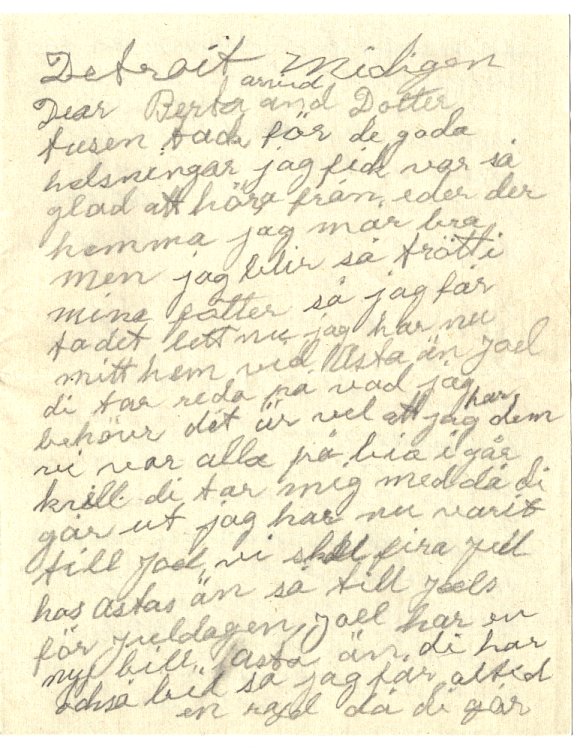 Detroit Midigen
Dear Berta arvid and Dotter
tusen tack för de goda
helsningar jag fick var så
glad att höra från eder der
hemma jag mår bra
men jag blir så trött i
mina fötter så jag får
ta det lett nu jag har nu
mitt hem vid Asta än Joel
di tar reda på vad jag
behövr det är vel att jag har dem
vi var alla på bia i går
kvell di tar mig med då di
går ut jag har nu varit
till Joel, vi skall fira Jull
hos Astas än så till Joels
för Juldagen, Joel har en
ny bill, Asta än di har
också bil så jag får altid
en rajd då di går